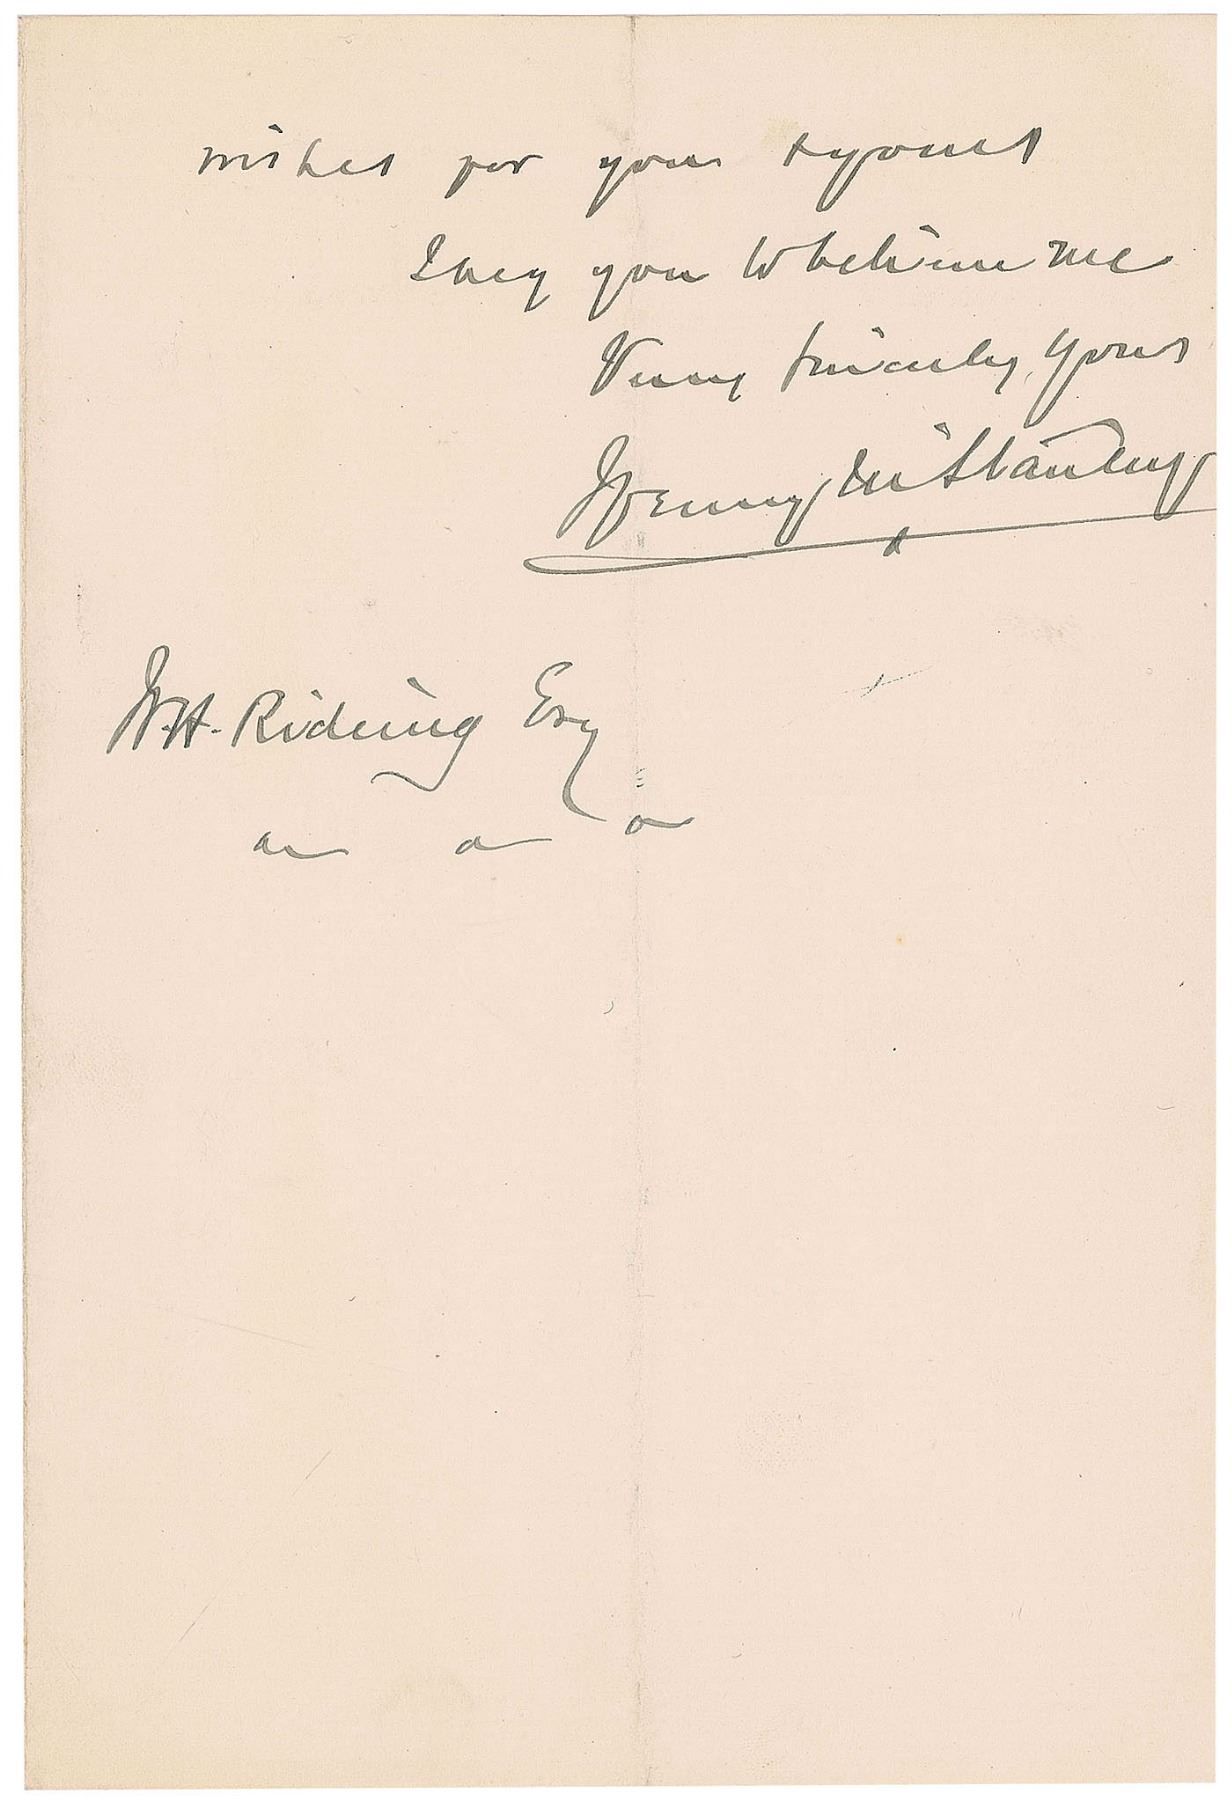 wishes for your & yours
I beg you to believe me
Very sincerely yours
Henry M Stanley
W.H. Rideing Esq